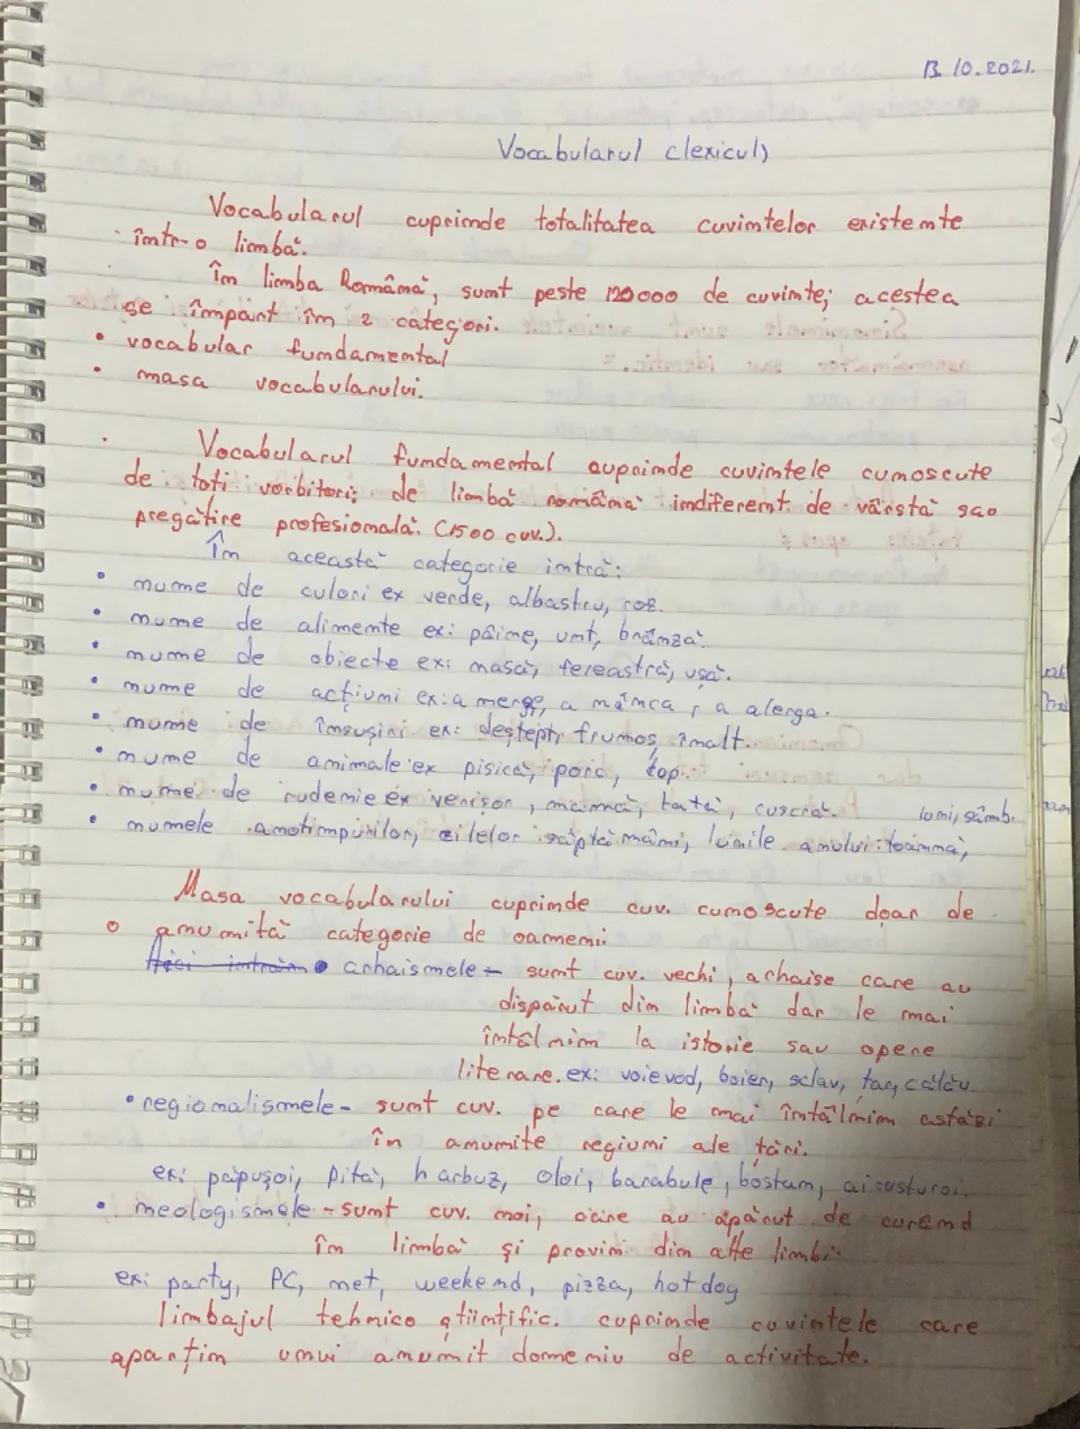 13. 10. 2021.
Vocabularul (lexicul)
Vocabularul cuprinde totalitatea cuvintelor existente
într-o limbă.
În limba Română, sunt peste 120000 de cuvinte; acestea
se împart în 2 categori.
• vocabular fundamental
• masa vocabularului.
Vocabularul fundamental cuprinde cuvintele cunoscute
de toti vorbitori; de limbă română indiferent de vârstă sao
pregătire profesională. (1500 cuv.).
În această categorie intră:
• nume de culori ex verde, albastru, roz.
• nume de alimente ex: pâine, unt, brânză.
• nume de obiecte ex: masă, fereastră, ușă.
• nume de acțiuni ex: a merge, a mânca, a alerga.
• nume de însușiri ex: deștept, frumos, înalt.
• nume de animale ex pisică, porc, țap.
• nume de rudenie ex verișor, mamă, tată, cuscră.
luni, sâmb.
• numele anotimpurilor, zilelor săptămâni, lunile anului: toamnă,
Masa vocabularului cuprinde cuv. cunoscute doar de
o anumită categorie de oameni:
Aici intrăm • arhaismele - sunt cuv. vechi, arhaise care au
dispărut din limbă dar le mai
întâlnim la istorie sau opere
literare. ex: voievod, boier, sclav, țar, călău.
• regionalismele - sunt cuv. pe care le mai întâlnim astăzi
în anumite regiuni ale țări.
ex: păpușoi, pită, harbuz, oloi, barabule, bostan,
• neologismele - sunt cuv. noi, care au apărut de curend
în limbă și provin din alte limbi.
ex: party, PC, net, weekend, pizza, hot dog
limbajul tehnico științific. cuprinde cuvintele care
aparțin unui anumit domeniu de activitate.